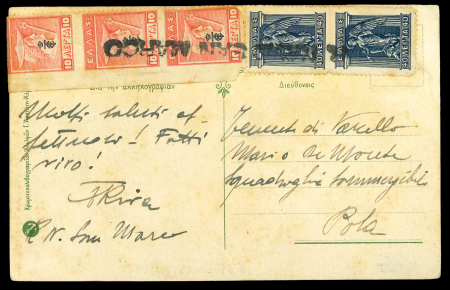 ΕΛΛΑΣ
10 ΛΕΠΤΑ 10
ΕΛΛΑΣ
10 ΛΕΠΤΑ 10
ΕΛΛΑΣ
10 ΛΕΠΤΑ 10
ΕΛΛΑΣ
10 ΛΕΠΤΑ 10
SAN MARCO
Διὰ τὴν ἀλληλογραφίαν
Διεύθυνσις
Molti saluti af-
fettuosi! Fatti
vivo!
Riva
R. N. San Marco
Tenente di Vascello
Mario de Monte
Squadriglia Sommergibili
Pola